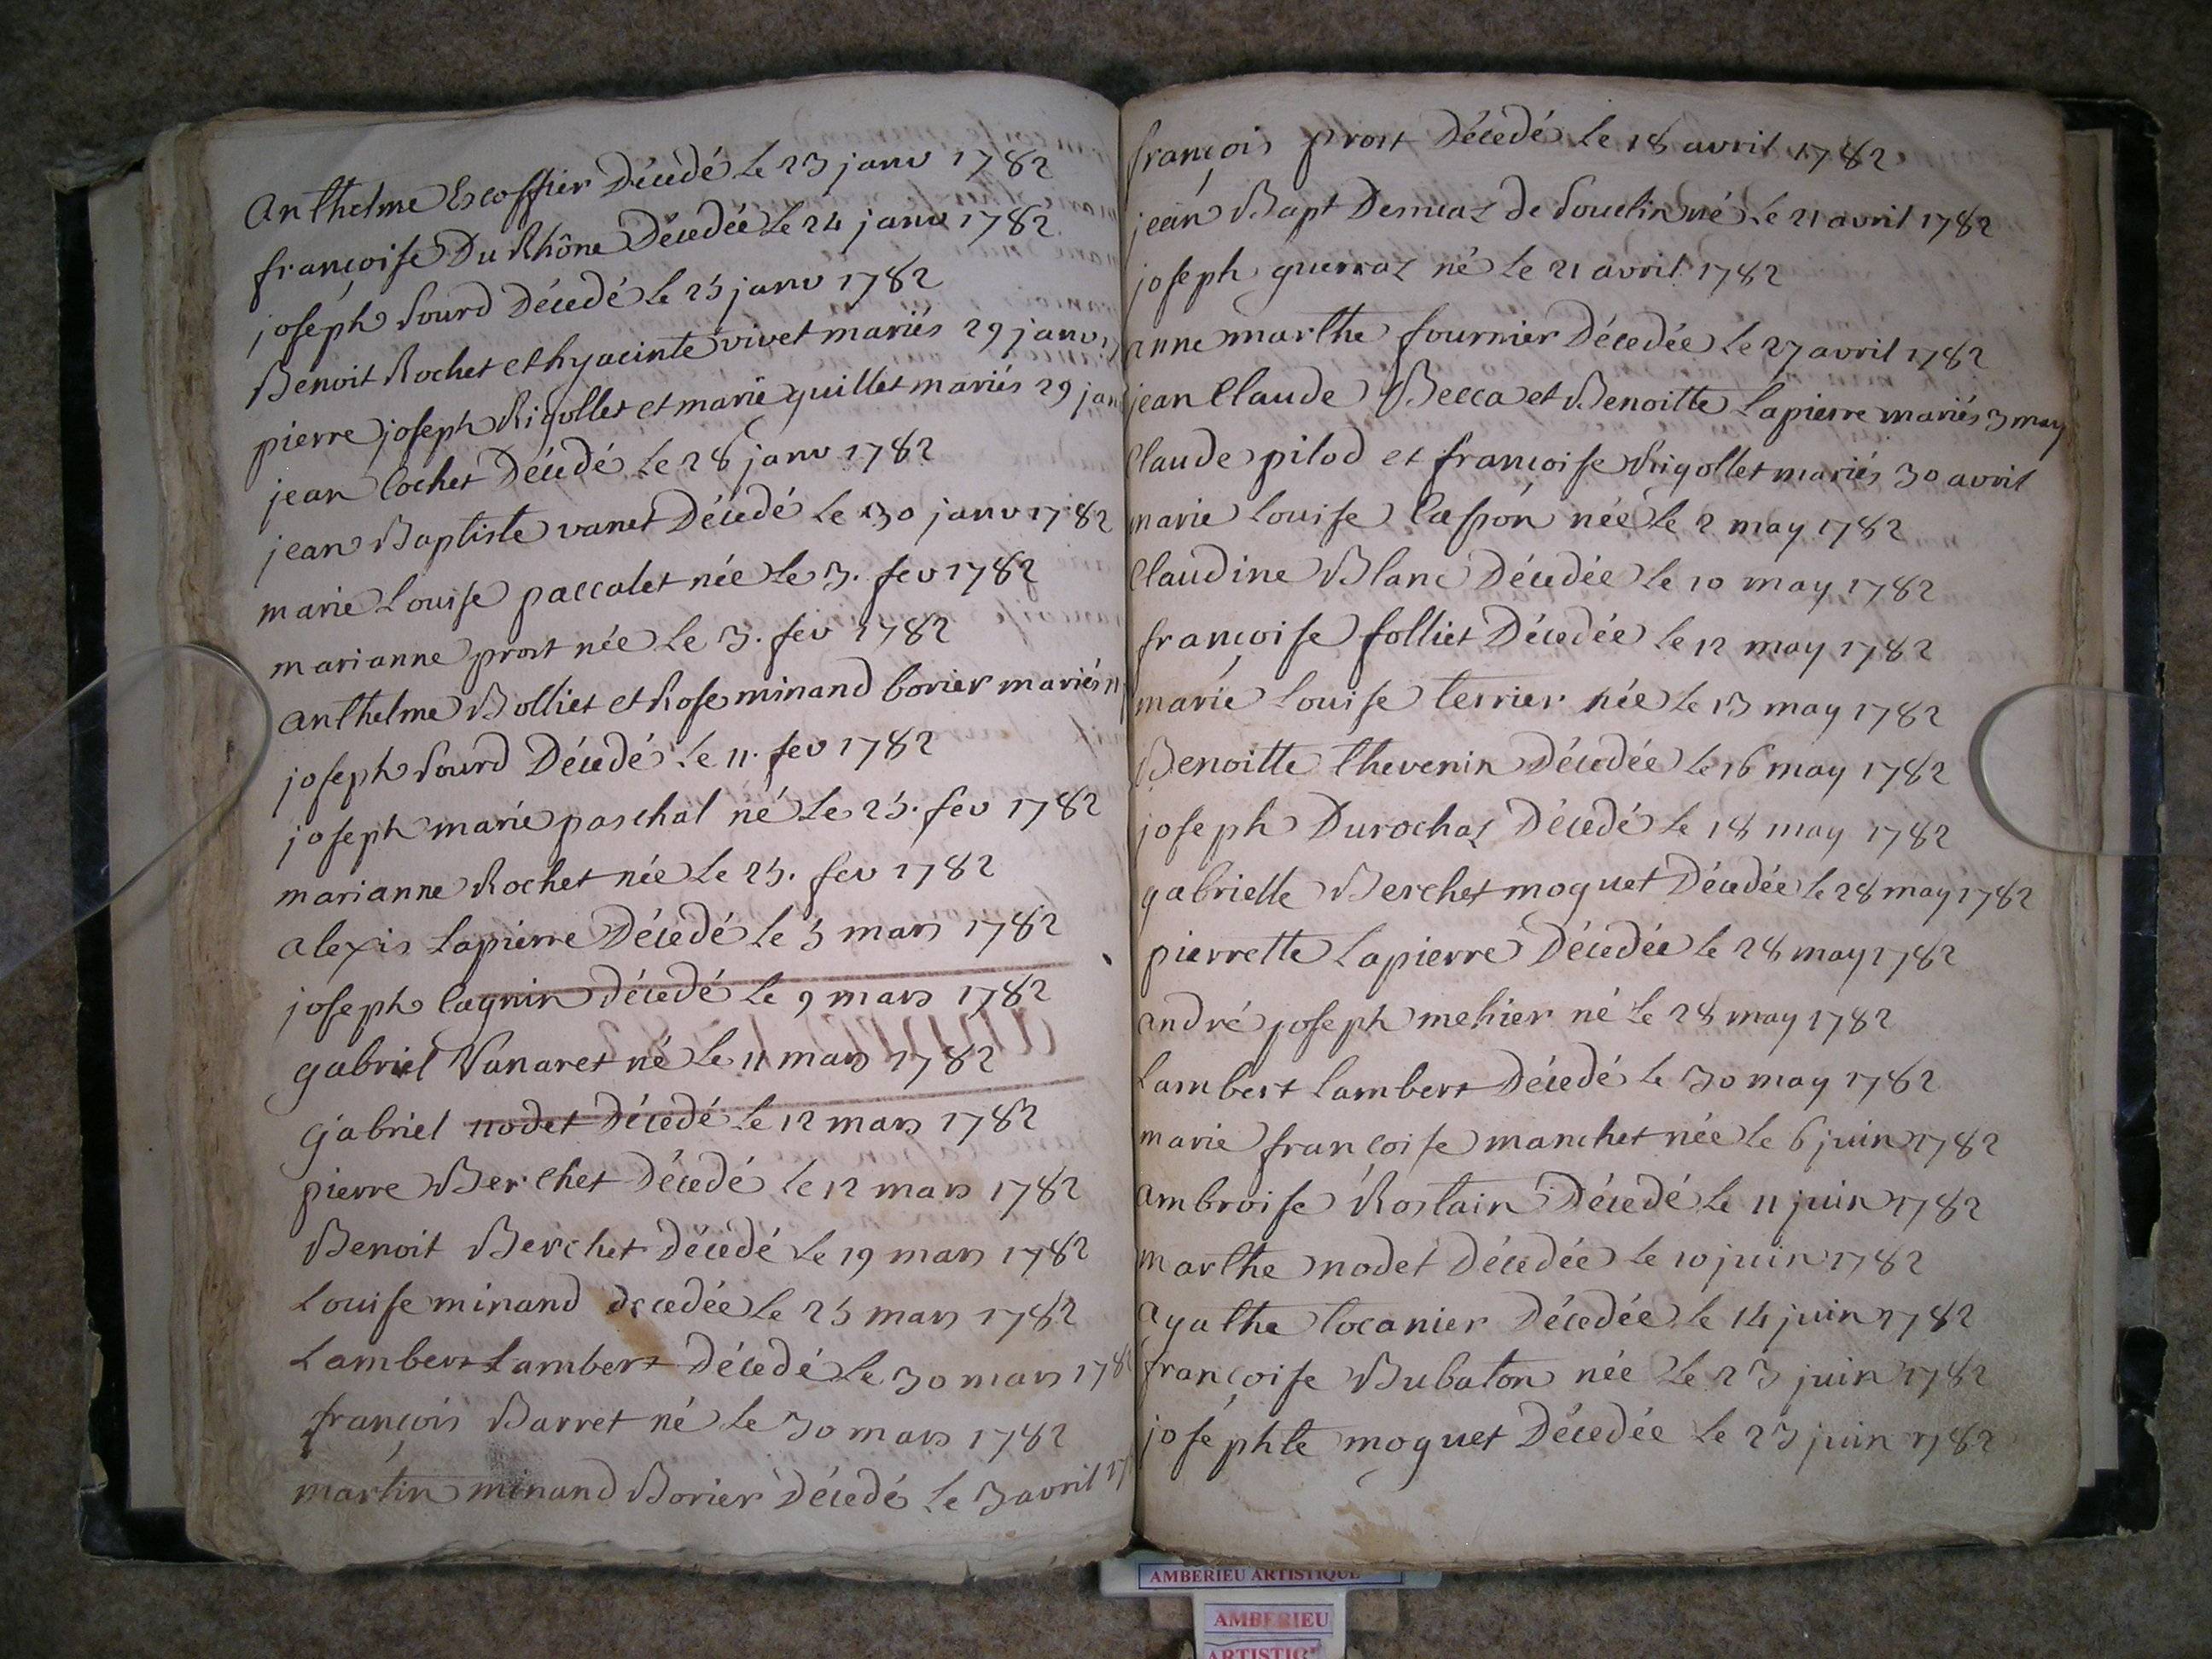 Anthelme Escoffier Décédé Le 23 janv 1782
françoise Du Rhône Décédée Le 24 janv 1782
joseph Sourd Décédé Le 25 janv 1782
Benoit Rochet et hyacinte vivet mariés 29 janv
pierre joseph Rigollet et marie guillet mariés 29 jan
jean Cochet Décédé Le 28 janv 1782
jean Baptiste vanet Décédé Le 30 janv 1782
marie Louise paccalet née Le 3. fev 1782
marianne prost née Le 3. fev 1782
anthelme Bolliet et Rose minand borier mariés 11
joseph Sourd Décédé Le 11. fev 1782
joseph marie paschal né Le 25. fev 1782
marianne Rochet née Le 25. fev 1782
alexis Lapierre Décédé Le 5 mars 1782
joseph Cagnin décédé Le 9 mars 1782
gabriel Vanaret né Le 11 mars 1782
Gabriel nodet Décédé Le 12 mars 1782
pierre Berchet Décédé Le 12 mars 1782
Benoit Berchet Décédé Le 19 mars 1782
Louise minand decedée Le 25 mars 1782
Lambert Lambert Décédé Le 30 mars 178
françois Barret né Le 30 mars 1782
martin minand Borier Décédé Le 3 avril 17
françois prost Décédé Le 18 avril 1782
jean Bapt Demeaz de Souclin né Le 21 avril 1782
joseph guerraz né Le 21 avril 1782
anne marthe fournier Décédée Le 27 avril 1782
jean Claude Becca et Benoitte Lapierre mariés 3 may
Claude pilod et françoise Rigollet mariés 30 avril
marie Louise Caspón née Le 2 may 1782
Claudine Blanc Décédée Le 10 may 1782
françoise folliet Décédée Le 12 may 1782
marie Louise terrier née Le 13 may 1782
Benoitte thevenin Décédée Le 16 may 1782
joseph Durochaz Décédé Le 18 may 1782
gabrielle Berchet moguet Décédée Le 28 may 1782
pierrette Lapierre Décédée Le 28 may 1782
andré joseph mehier né Le 28 may 1782
Lambert Lambert Décédé Le 30 may 1782
marie françoise manchet née Le 6 juin 1782
ambroise Rostain Décédé Le 11 juin 1782
marthe nodet Décédée Le 10 juin 1782
agathe Cocanier Décédée Le 14 juin 1782
françoise Bubaton née Le 23 juin 1782
josephte moguet Décédée Le 23 juin 1782
AMBERIEU ARTISTIQUE
AMBERIEU
ARTISTIQ